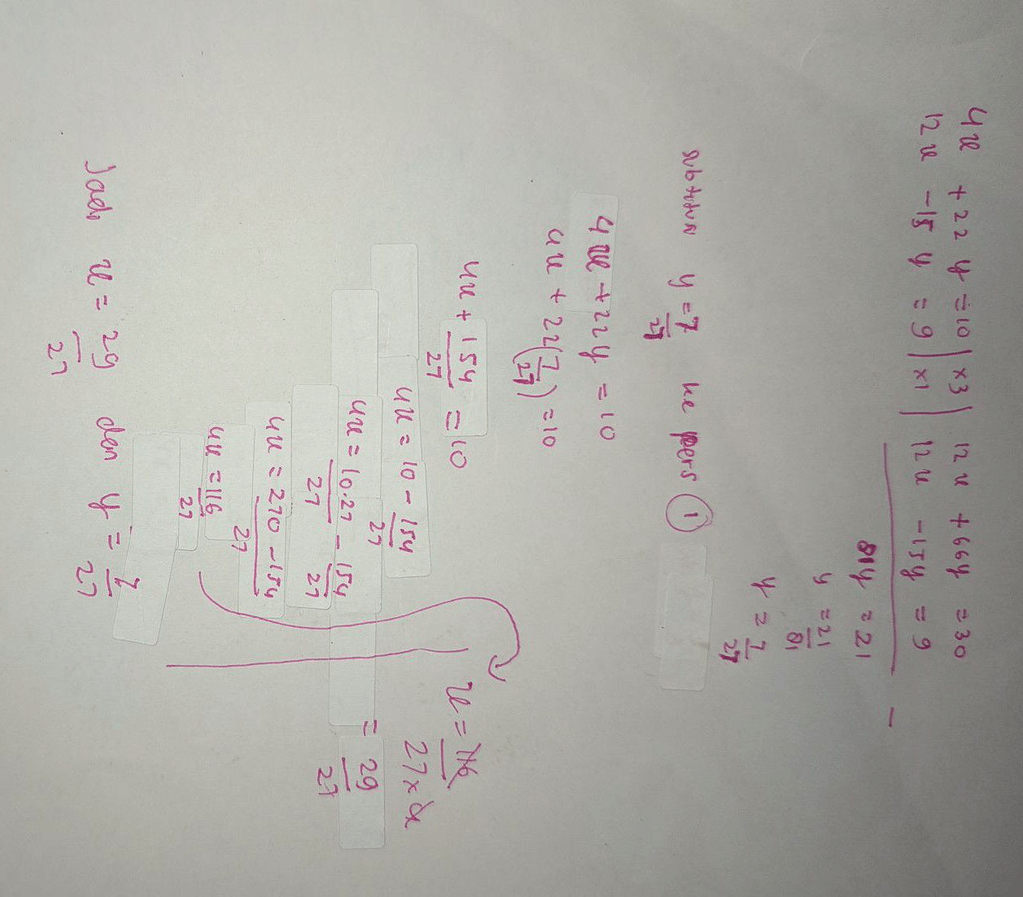 4x + 22y = 10 | x3 | 12x + 66y = 30
12x - 15y = 9 | x1 | 12x - 15y = 9
-
81y = 21
y = 21/81
y = 7/27
y = 7/27 ke pers 1
4x + 22y = 10
4x + 22(7/27) = 10
4x + 154/27 = 10
4x = 10 - 154/27
4x = 10.27/27 - 154/27
4x = 270 - 154/27
4x = 116/27
x = 116/27x4
= 29/27
Jadi x = 29/27 dan y = 7/27